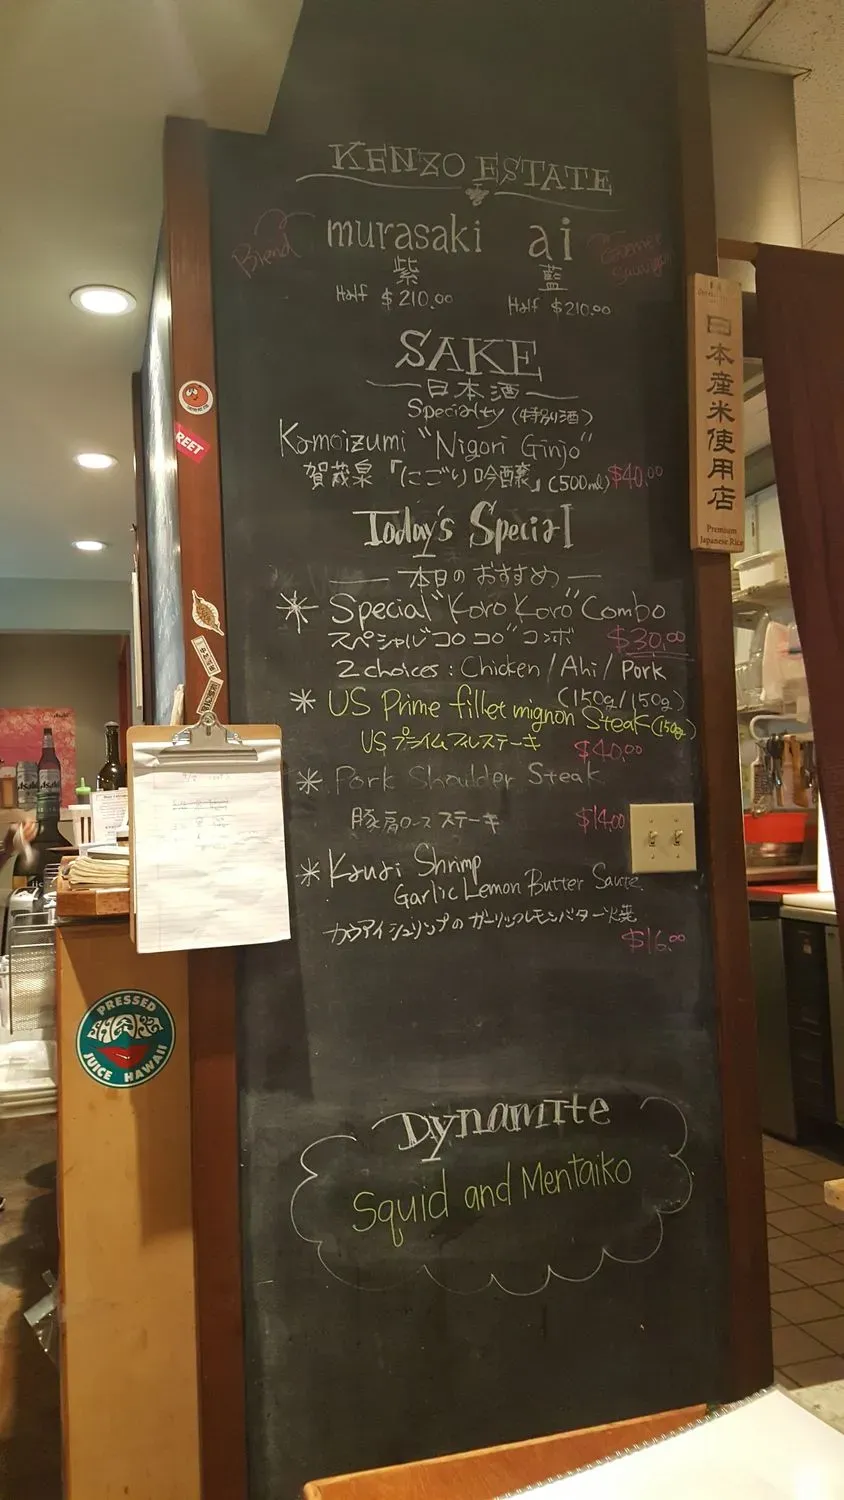 KENZO ESTATE
Blend murasaki ai
紫 藍
Half $210.00 Half $210.00
SAKE
日本酒
Specialty (特別酒)
Kamoizumi "Nigori Ginjo"
賀茂泉「にごり吟醸」(500ml) $40.00
Today's Special
本日のおすすめ
* Special "Koro Koro" Combo
スペシャル"コロコロ"コンボ $30.00
2 choices : Chicken / Ahi / Pork
(150g/150g)
* US Prime fillet mignon Steak (150g)
US プライムフィレステーキ $40.00
* Pork Shoulder Steak
豚肩ロース ステーキ $14.00
* Kauai Shrimp
Garlic Lemon Butter Sauce
カウアイシュリンプの ガーリックレモンバター焼 $16.00
Dynamite
Squid and Mentaiko
日本産米使用店
Premium
Japanese Rice
REET
PRESSED
JUICE HAWAII
Asahi